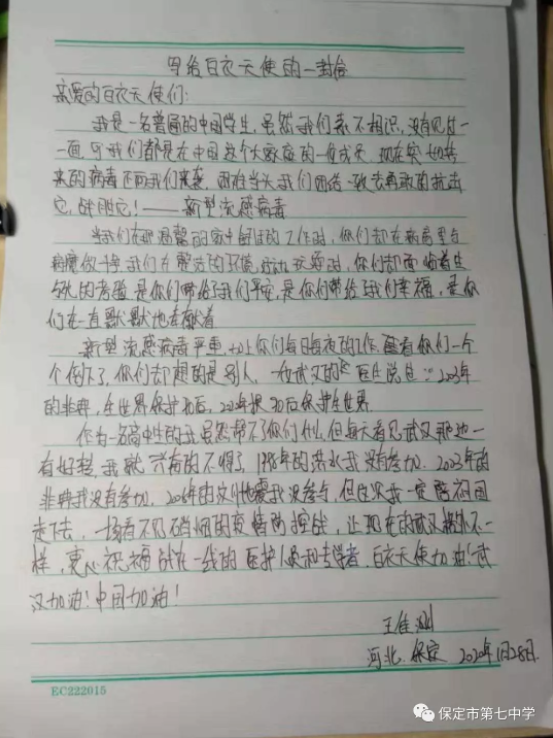 写给白衣天使的一封信
亲爱的白衣天使们:
我是一名普通的中国学生,虽然我们素不相识,没有见过一
一面,可我们都是在中国这个大家庭的一位成员,现在突如其
来的病毒正向我们袭来,困难当头我们团结一致去勇敢的抗击
它,战胜它!——新型流感病毒
当我们在那温馨的家中的工作时,你们却在病房里与
病魔做斗争,我们在舒适的环境时,你们却面临着生
与死的考验,是你们带给了我们平安,是你们带给了我们幸福,是你
们在一直默默地奉献着
新型流感病毒严重,加上你们每日每夜的工作,看你们一个
个倒下了,你们却想的是别人,一位武汉的医生说过:2003年
的非典,全世界保护90后,2020年换90后保护全世界
作为一名高中生的我虽然帮不了你们什么,但每天看见武汉那边一
有好转,我就兴奋的不得了,1998年的洪水我没有参加,2003年的
非典我没有参加,2008年的汶川地震我没参与,但这次我一定陪祖国
走下去,一场看不见硝烟的疫情防控战,让现在的武汉格外不一
样,衷心祝福战在一线的医护人员和专学者,白衣天使加油!武
汉加油!中国加油!
王佳
河北.保定 2020年1月28日.
EC222015
保定市第七中学